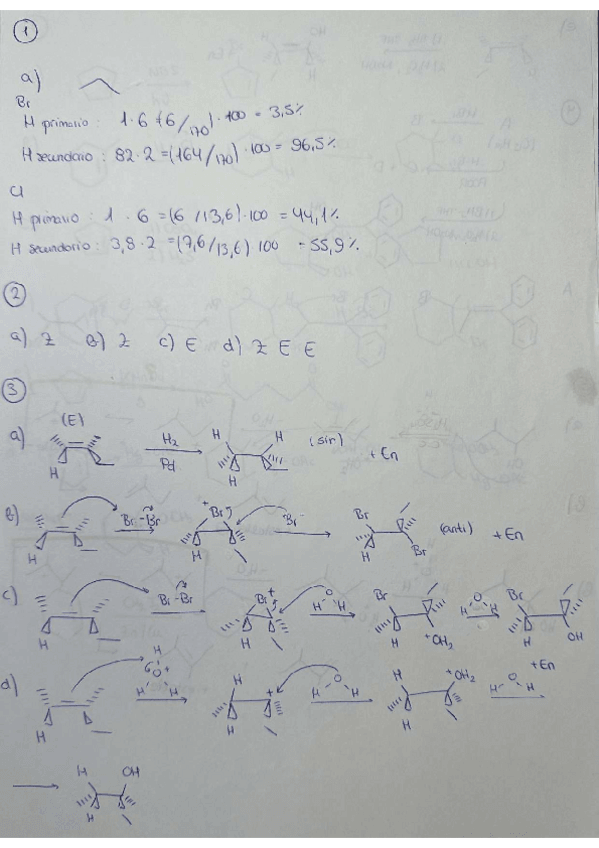 1
a)
Br
H primario : 1 · 6 = (6/170) · 100 = 3,5%
H secundario : 82 · 2 = (164/170) · 100 = 96,5%
Cl
H primario : 1 · 6 = (6/13,6) · 100 = 44,1%
H secundario : 3,8 · 2 = (7,6/13,6) 100 = 55,9%
2
a) Z b) Z c) E d) Z E E
3
a) (E) H H2 Pd H H H (sin) + En
b) H Br-Br + Br H Br- Br H Br (anti) + En
c) H Br-Br Br+ H H O H Br H +OH2 H O H Br H OH
d) H H O+ H H H + H H O H H H +OH2 H O H + En
H OH H